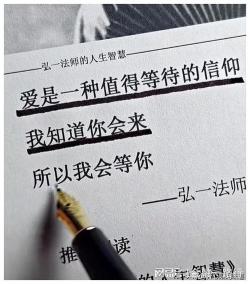 ——弘一法师的人生智慧——
爱是一种值得等待的信仰
我知道你会来
所以我会等你
——弘一法师
推 读
的人生智慧》